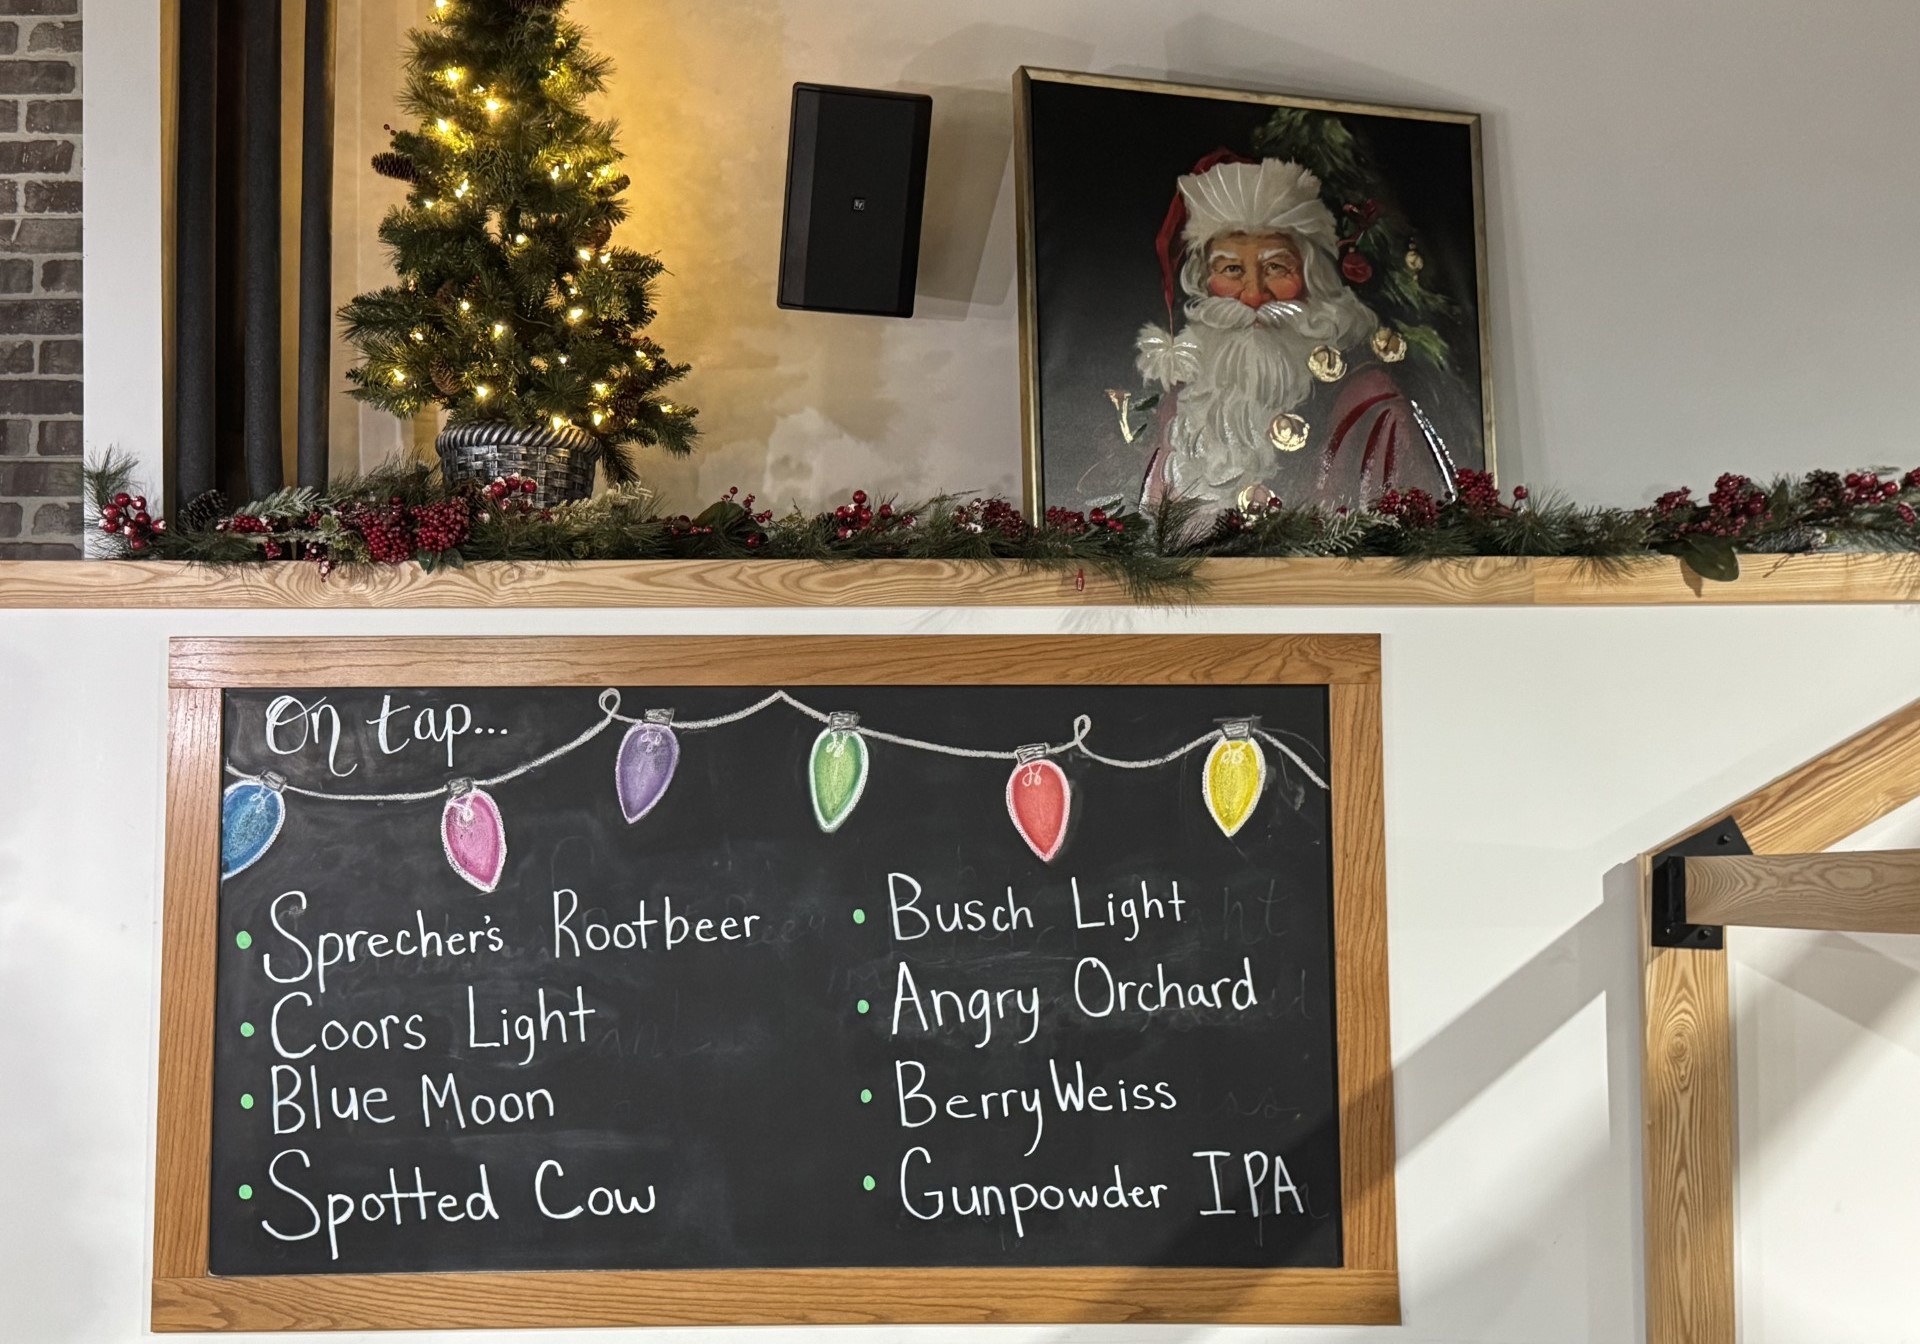 On tap...
Sprecher's Rootbeer
Coors Light
Blue Moon
Spotted Cow
Busch Light
Angry Orchard
Berry Weiss
Gunpowder IPA